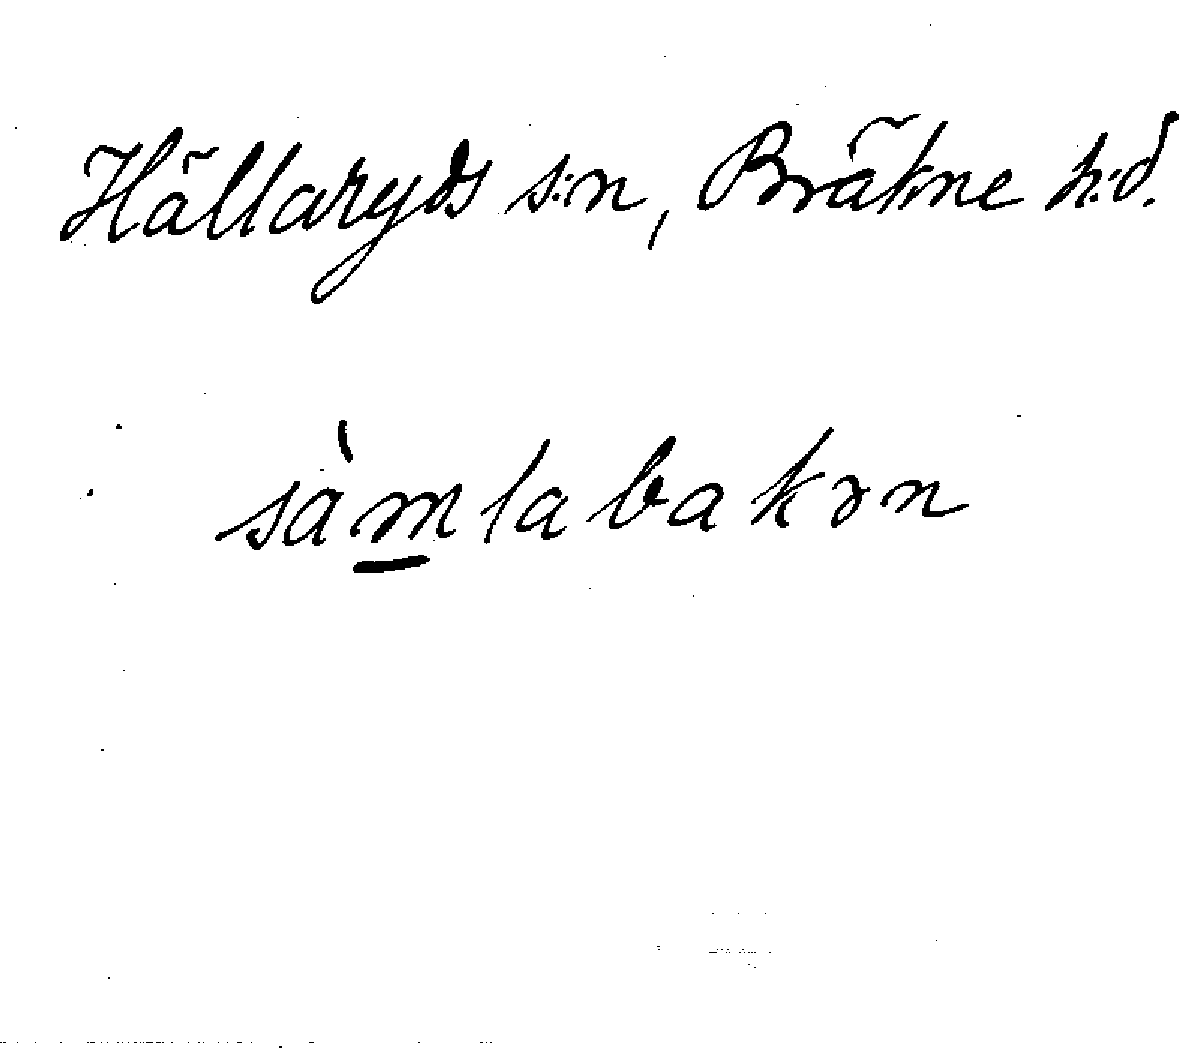 Hällaryds s:n, Bräkne h:d.
sàm̲labakən